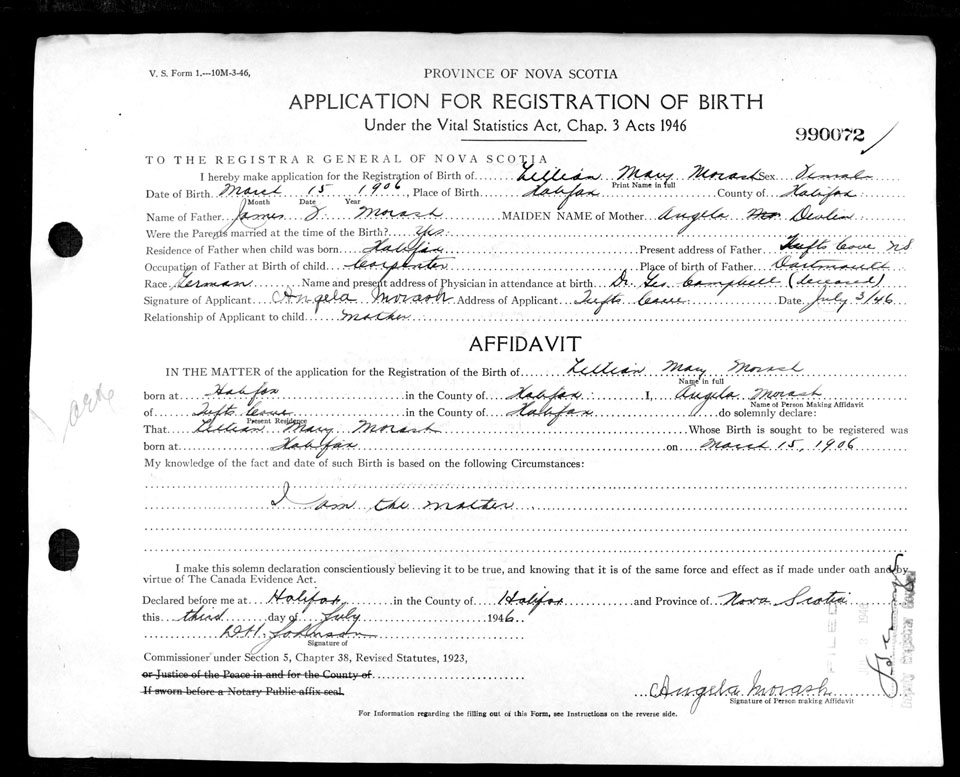 V. S. Form 1.---10M-3-46,
PROVINCE OF NOVA SCOTIA
APPLICATION FOR REGISTRATION OF BIRTH
Under the Vital Statistics Act, Chap. 3 Acts 1946
990072
TO THE REGISTRAR GENERAL OF NOVA SCOTIA
I hereby make application for Registration of Birth of Lillian Mary Morash Sex Female
Print Name in full
Date of Birth March 15 1906, Place of Birth Halifax County of Halifax
Month Date Year
Name of Father James Morash MAIDEN NAME of Mother Angela Devlin
Were the Parents married at the time of the Birth? Yes.
Residence of Father when child was born Halifax Present address of Father Tufts Cove NS
Occupation of Father at Birth of child Carpenter Place of birth of Father Dartmouth
Race German Name and present address of Physician in attendance at birth Dr. Geo. Campbell (deceased)
Signature of Applicant Angela Morash Address of Applicant Tufts Cove Date July 3/46
Relationship of Applicant to child mother
AFFIDAVIT
IN THE MATTER of the application for the Registration of the Birth of Lillian Mary Morash
Name in full
born at Halifax in the County of Halifax I, Angela Morash
Name of Person Making Affidavit
of Tufts Cove in the County of Halifax do solemnly declare:
Present Residence
That Lillian Mary Morash Whose Birth is sought to be registered was
born at Halifax on March 15, 1906
My knowledge of the fact and date of such Birth is based on the following Circumstances:
I am the mother.
I make this solemn declaration conscientiously believing it to be true, and knowing that it is of the same force and effect as if made under oath and by
virtue of The Canada Evidence Act.
Declared before me at Halifax in the County of Halifax and Province of Nova Scotia
this third day of July 1946
Johnson
Signature of
Commissioner under Section 5, Chapter 38, Revised Statutes, 1923,
or Justice of the Peace in and for the County of
If sworn before a Notary Public affix seal.
Angela Morash
Signature of Person making Affidavit
FILED
For Information regarding the filling out of this Form, see Instructions on the reverse side.